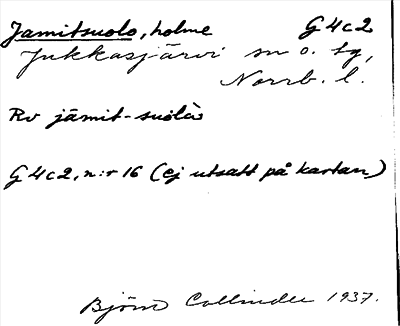 Jamitsuolo, holme G4c2
Jukkasjärvi sn o. tg,
Norrb. l.
Rv jämit-suolà
G4c2, n:r 16 (ej utsatt på kartan)
Björn Collinder 1937.